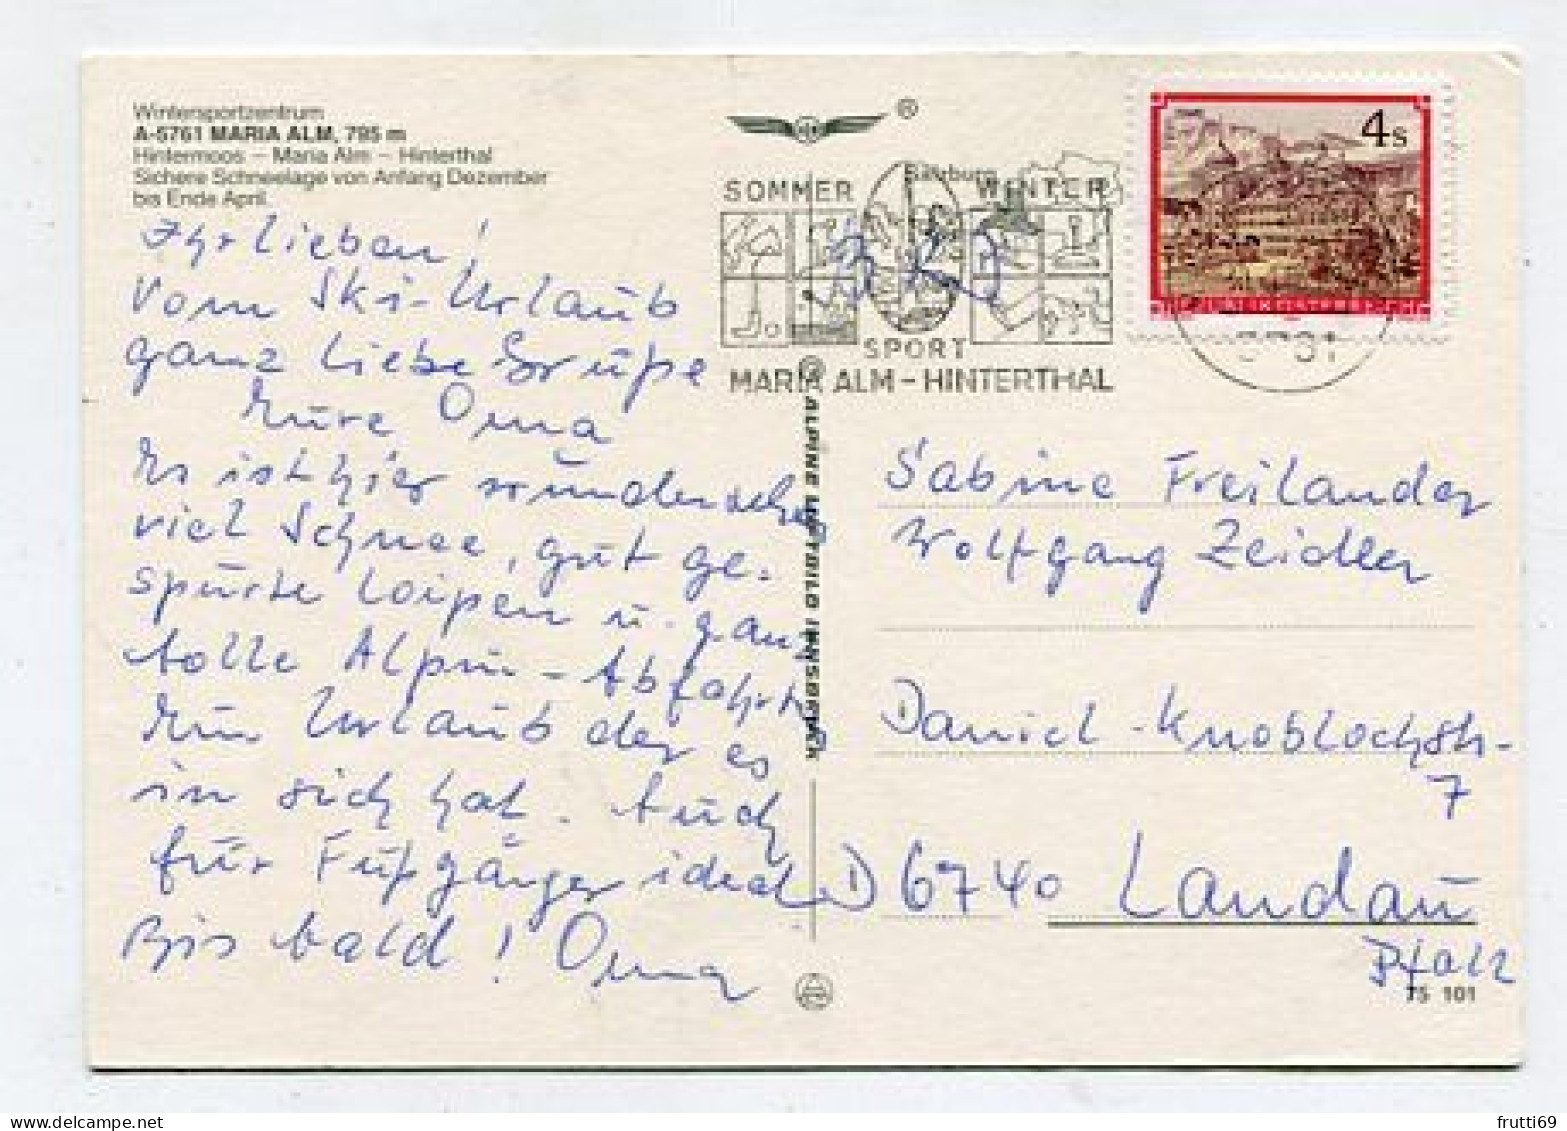 Wintersportzentrum
A-5761 MARIA ALM, 795 m
Hintermoos – Maria Alm – Hinterthal
Sichere Schneelage von Anfang Dezember
bis Ende April.
Ihr Lieben!
Vom Ski-Urlaub
ganz liebe Grüße
Eure Oma
Es ist hier wunderschön
viel Schnee, gut ge-
spurte Loipen u. ganz
tolle Alpin-Abfahrt
Ein Urlaub der es
in sich hat. Auch
für Fußgänger ideal
Bis bald! Oma
®
SOMMER
Salzburg
WINTER
SPORT
MARIA ALM – HINTERTHAL
4s
REPUBLIK ÖSTERREICH
ALPINE LUFTBILD INNSBRUCK
Sabine Freilander
Wolfgang Zeidler
Daniel-Knoblochstr-
7
D 6740 Landau
Pfalz
TS 101
frutti69